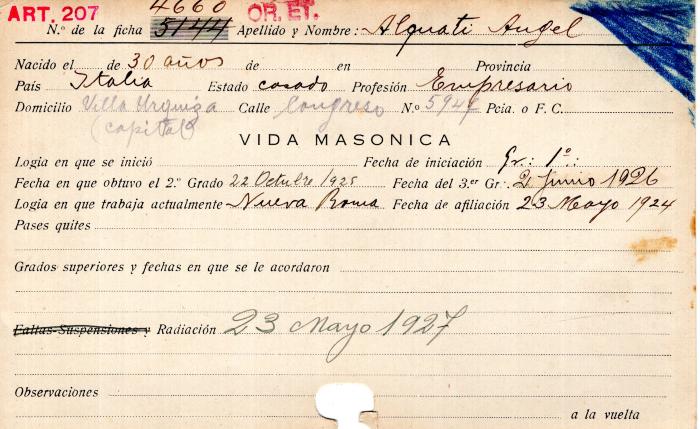 ART. 207 4660 OR. ET.
N.º de la ficha 5144 Apellido y Nombre: Alquati Angel
Nacido el de 30 años de en Provincia
País Italia Estado casado Profesión Empresario
Domicilio Villa Urquiza Calle Congreso N.º 594 Pcia. o F. C.
(capital)
VIDA MASONICA
Logia en que se inició Fecha de iniciación Gr.: 1º.:
Fecha en que obtuvo el 2.º Grado 22 Octubre 1925 Fecha del 3.er Gr. 2 Junio 1926
Logia en que trabaja actualmente Nueva Roma Fecha de afiliación 23 Mayo 1924
Pases quites
Grados superiores y fechas en que se le acordaron
Faltas-Suspensiones y Radiación 23 Mayo 1927
Observaciones
a la vuelta